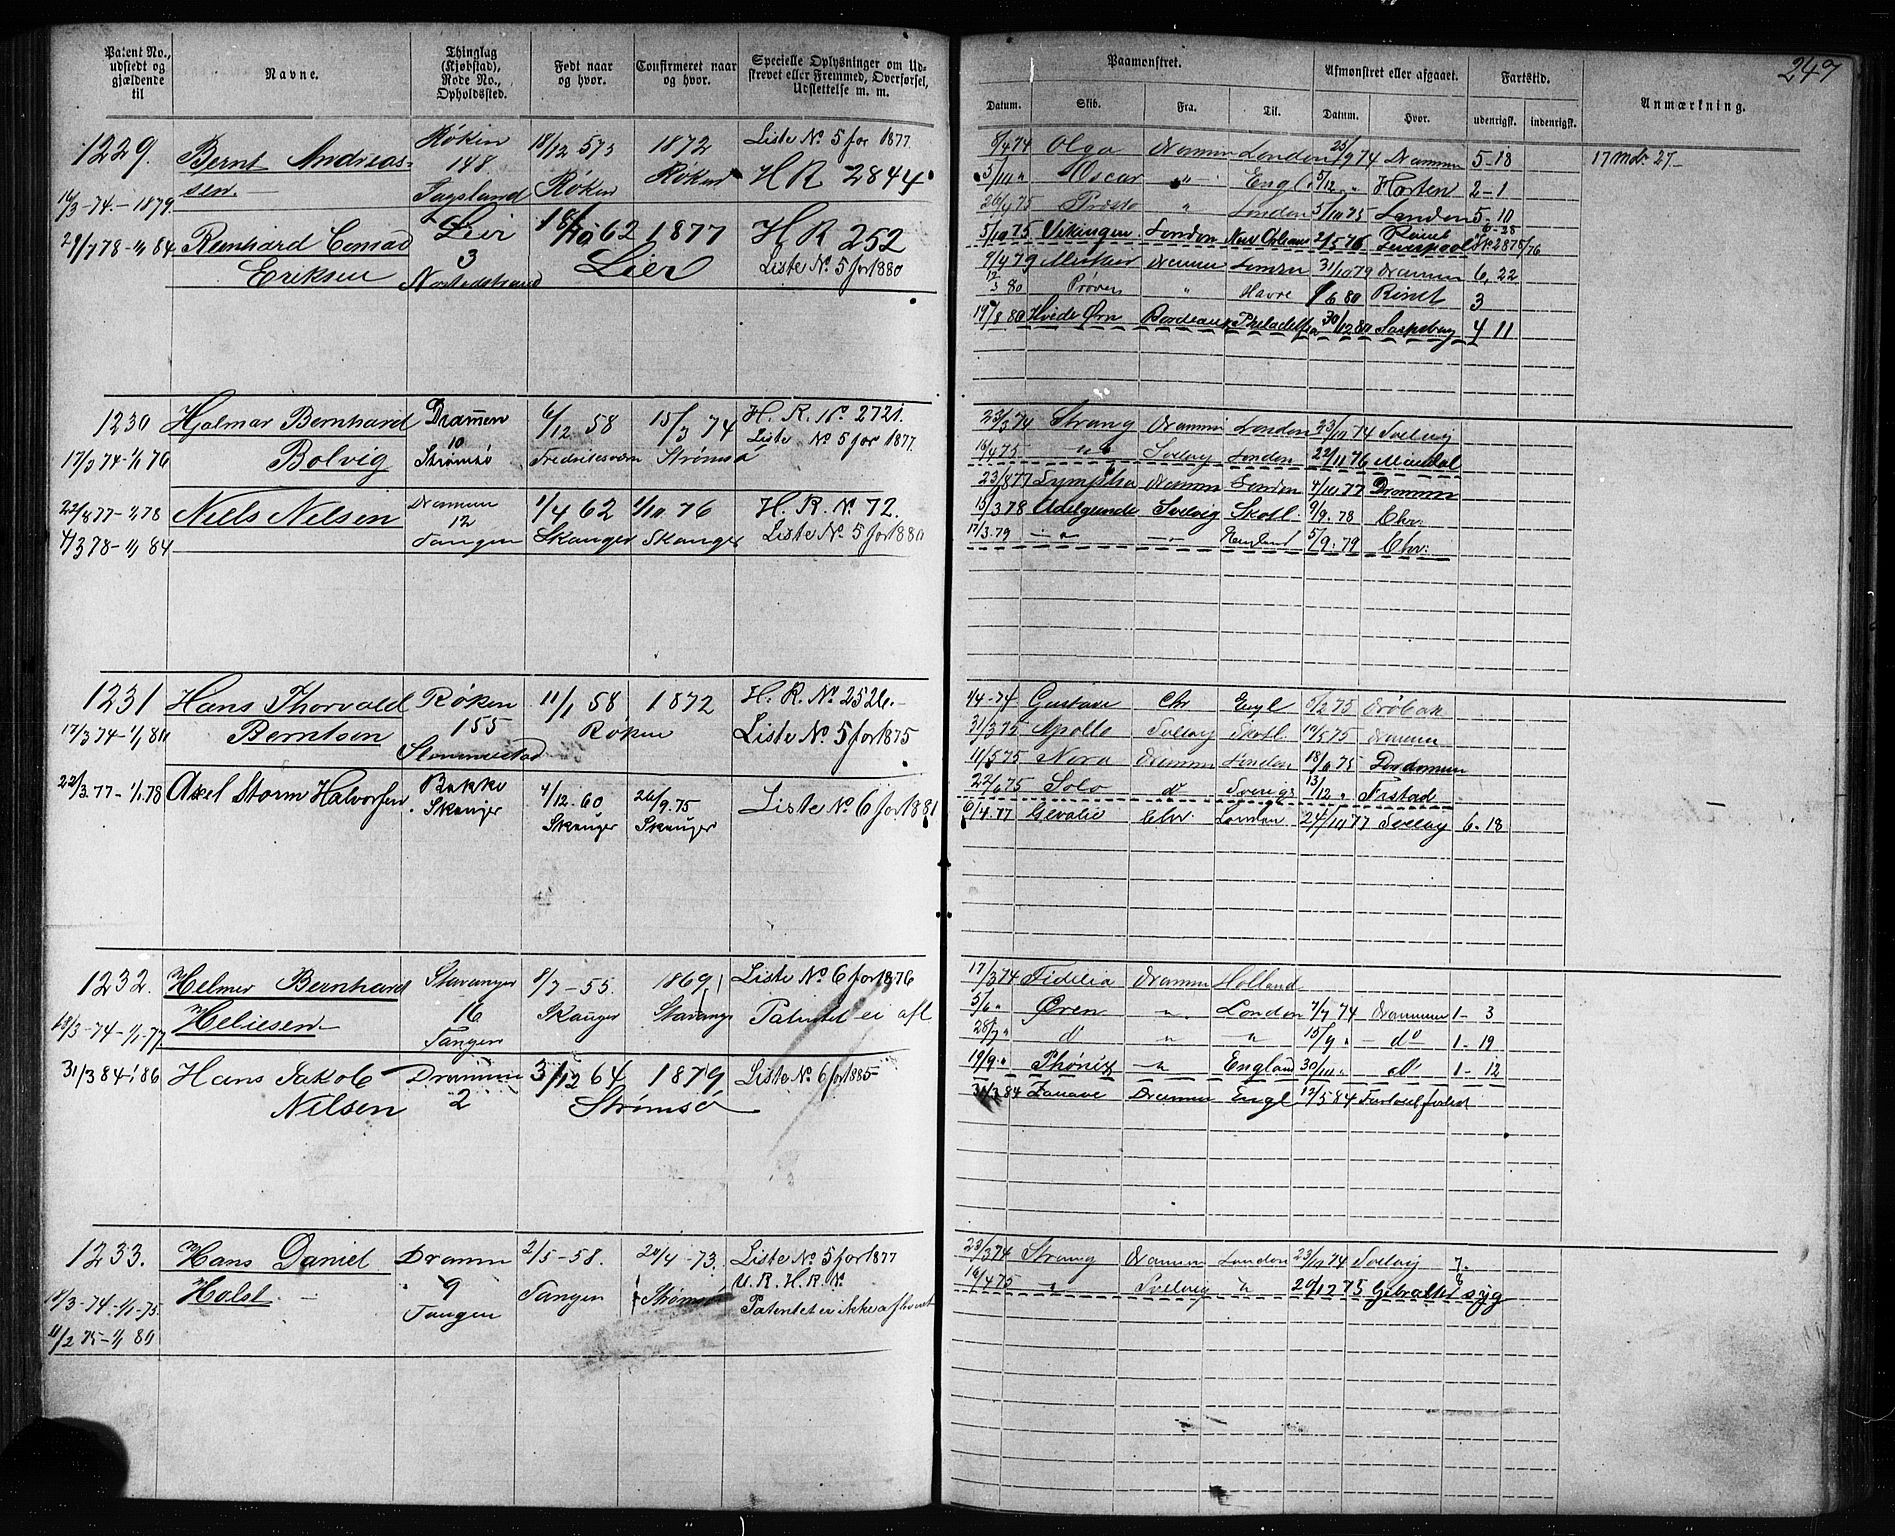 247
Patent No., udstedt og gjældende til
Navne.
Thinglag (Kjøbstad), Rode No., Opholdssted.
Født naar og hvor.
Confirmeret naar og hvor.
Specielle Oplysninger om Udskrevet eller Fremmed, Overførsel, Udslettelse m. m.
Paamønstret.
Afmønstret eller afgaaet.
Fartstid.
Anmærkning.
Datum.
Skib.
Fra.
Til.
Datum.
Hvor.
udenrigsk.
indenrigsk.
1229.
Bernt Andreassen.
Røken
148
18/12 57
1872
Røken
Røken
Liste No. 5 for 1877.
HR 2844
16/3-74.-1879.
29/1 78-1/1 84
Bernhard Conrad
Eriksen
Lier
3
62
1877
Lier
HR 252
Liste No. 5 for 1880
8/4 74 Olga Drammen London 25/9 74 Drammen 5-18
17 Mdr. 27.-
Oscar " Engl. 5/12 " Horten 2-1
" London 5/10 75 London 5-10
5/10 75 Vikingen London New Orleans 2/5 76 Liverpool
9/4 79 Drammen London 31/10 79 Drammen 6,22
12/3 80 Prøven " Havre 1/6 80 3
19/8 80 Hvide Ørn Bordeaux Philadelfia 30/12 80 Sarpsborg 4 11
1230
Hjalmar Bernhard
Bolvig
Drammen
10
Strømsø
6/12 58
Fredriksværn
15/3 74
Strømsø
H. R. No. 2721.
Liste No. 5 for 1877.
17/3 74-1/1 76
22/8 77-1/1 78
4/3 78-1/1 84
Niels Nilsen
Drammen
12
Tangen
1/4 62
Skauger
1/10 76
Skauger
H. R. No. 72.
Liste No. 5 for 1880
23/3 74 Strang Drammen London 23/10 74 Svelvig
16/4 75 " Svelvig London 22/11 76
23/8 77 Drammen London 4/10 77 Drammen
13/3 78 Adelgunde Svelvig Skotl. 9/9. 78 Chr.
17/3.79 -"- -"- England 5/9. 79 Chr:
1231
Hans Thorvald
Berntsen
Røken
155
11/1 58
1872
Røken
H. R. No. 2526.-
Liste No. 5 for 1875
17/3 74-1/1 80
22/3.77-1/1.78
Axel Storm Halvorsen
Bakke
Skauger
4/12.60
Skauger
26/9.75
Skauger
Liste No. 6 for 1881
1/4-74 Gustave Chr Engl 5/2 75 Drøbak
31/3 75 Apollo Svelvig Skotl. Drammen
11/5 75 Nora Drammen London 18/6 75
22/6 75 do Sverige 13/12 "
6/4.77 Gevalie Chr. London 24/10 77 Svelvig 6-18
1232.
Helmer Bernhard
Heliesen
Stavanger
16
Tangen
8/7-55.
Skauger
1869
Stavanger
Liste No. 6 for 1876
Patentet er afl
18/3-74-1/1-77
31/3 84-1/1 86
Hans Jakob
Nilsen
Drammen
2
31/12 64
1879
Strømsø
Liste No. 6 for 1885-
17/3 74 Fidelia Drammen Holland
5/6 " Øren " London 7/7 74 Drammen 1-3
28/7 " do " " 15/9 " do 1-19
19/9. " Phønix " England 30/11 " do 1-12
31/3 84 Drammen Engl 12/5 84
1233.
Hans Daniel
Holst
Drammen
9
Tangen
2/5-58.
Tangen
20/4-73.
Strømsø
Liste No. 5 for 1877
U. R. H. R. No.
Patentet er ikke afhentet
18/3-74-1/1-75.
11/2 75-1/1 80
23/3 74 Strang Drammen London 23/10 74 Svelvig 7.
16/4 75 " Svelvig " 20/12 75 Gibralter syg